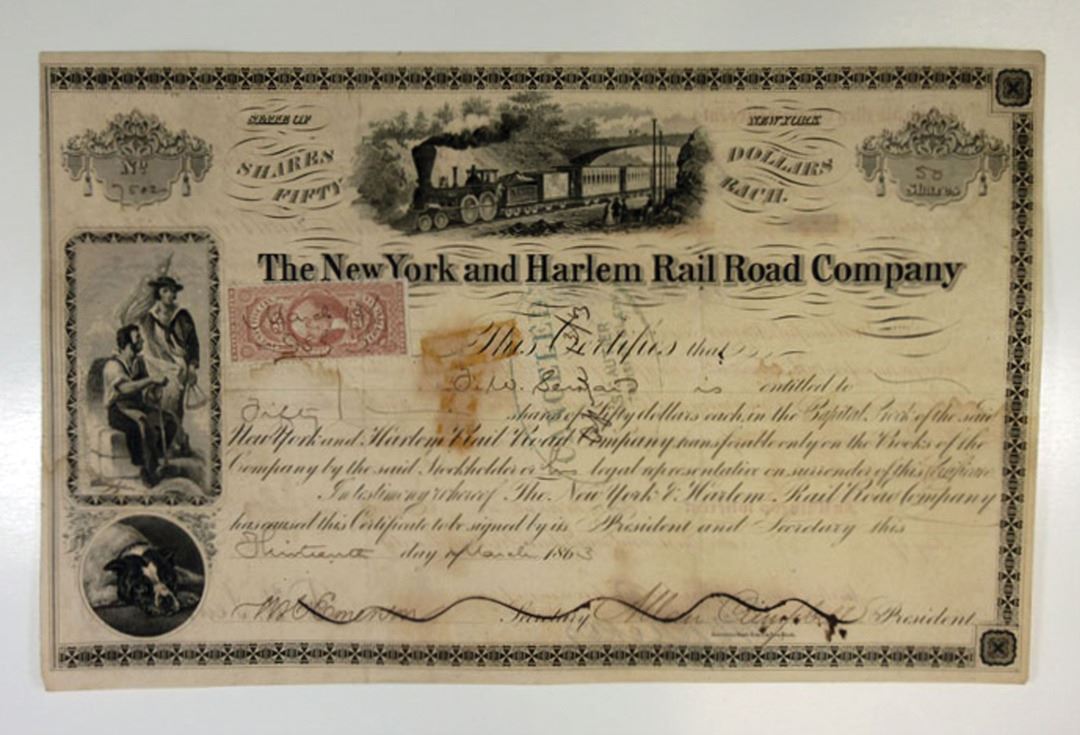 STATE OF NEW YORK
No 7502
SHARES FIFTY DOLLARS EACH.
50 Shares
The New York and Harlem Rail Road Company
This Certifies that
is entitled to
Fifty shares of fifty dollars each, in the Capital Stock of the said
New York and Harlem Rail Road Company transferable only on the Books of the
Company by the said Stockholder or his legal representative on surrender of this Certificate
In testimony whereof The New York & Harlem Rail Road Company
has caused this Certificate to be signed by its President and Secretary this
Thirteenth day of March 1863
Secretary Allan Campbell President